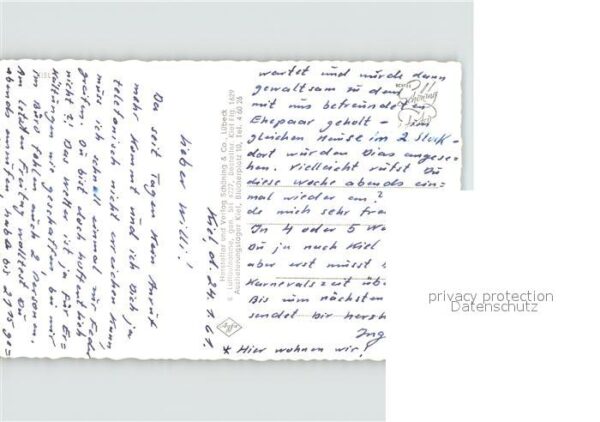 Kiel, d. 24.1.61
lieber Willi!
Da seit Tagen kein Anruf
mehr kommt und ich Dich ja
telefonisch nicht erreichen kann
muss ich schnell einmal zur Feder
greifen. Du bist doch hoffentlich
nicht ? Das Wetter ist ja für Er-
kältungen wie geschaffen bei mir
im Büro fehlen auch 2 Personen.
Am letzten Freitag wolltest Du
abends anrufen, habe bis 21.15 ge-
wartet und wurde dann
gewaltsam zu dem
mit uns befreundeten
Ehepaar geholt -
gleichen Hause im 2 Stock
dort wurden Dias angese-
hen. Vielleicht rufst Du
diese Woche abends ein-
mal wieder an?
de mich sehr
In 4 oder 5
Du ja nach Kiel
aber erst musst
Karnevalszeit üb
Bis zum nächsten
sendet Dir herzl
Ing
* Hier wohnen wir!
Hersteller und Verlag Schöning & Co., Lübeck
Luftaufnahme, gen. SH 627, Bestell-Nr. Kiel Flg. 1629
Auslieferungslager Kiel, Blücherplatz 19, Tel. 4 60 26
privacy protection
Datenschutz